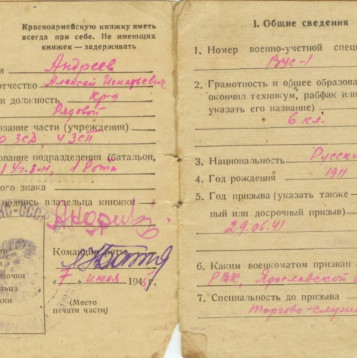 Красноармейскую книжку иметь
всегда при себе. Не имеющих
книжек — задерживать
Андреев
отчество Алексей Игнатьевич
и должность Кр-ц
Рядовой
ование части (учреждения)
ЗСД, 4 ЗСП
ование подразделения (батальон,
1 Рота
ного знака
подпись владельца книжки
Командир роты
7 июля 194
(Место
печати части)
I. Общие сведения
1. Номер военно-учетной спец
Вус-1
2. Грамотность и общее образова
окончил техникум, рабфак или
указать его название)
6 кл.
3. Национальность Русски
4. Год рождения 1911
5. Год призыва (указать также —
ный или досрочный призыв)
29.06.41
6. Каким военкоматом призван
РВК, Ярославской
7. Специальность до призыва
торгово-служ